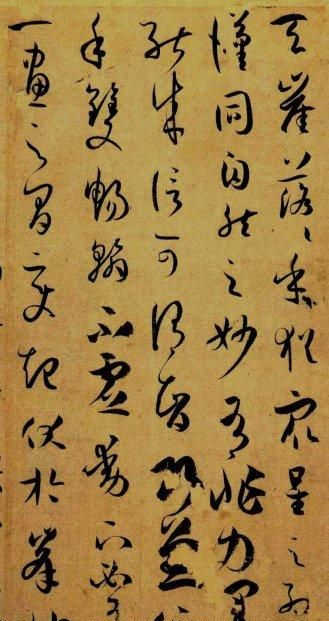 天崖落〻乎猶衆星之列
漢同自然之妙有非力運
能成信可謂智巧兼
手雙暢翰不虛動下必有
一畫之間變起伏於峯